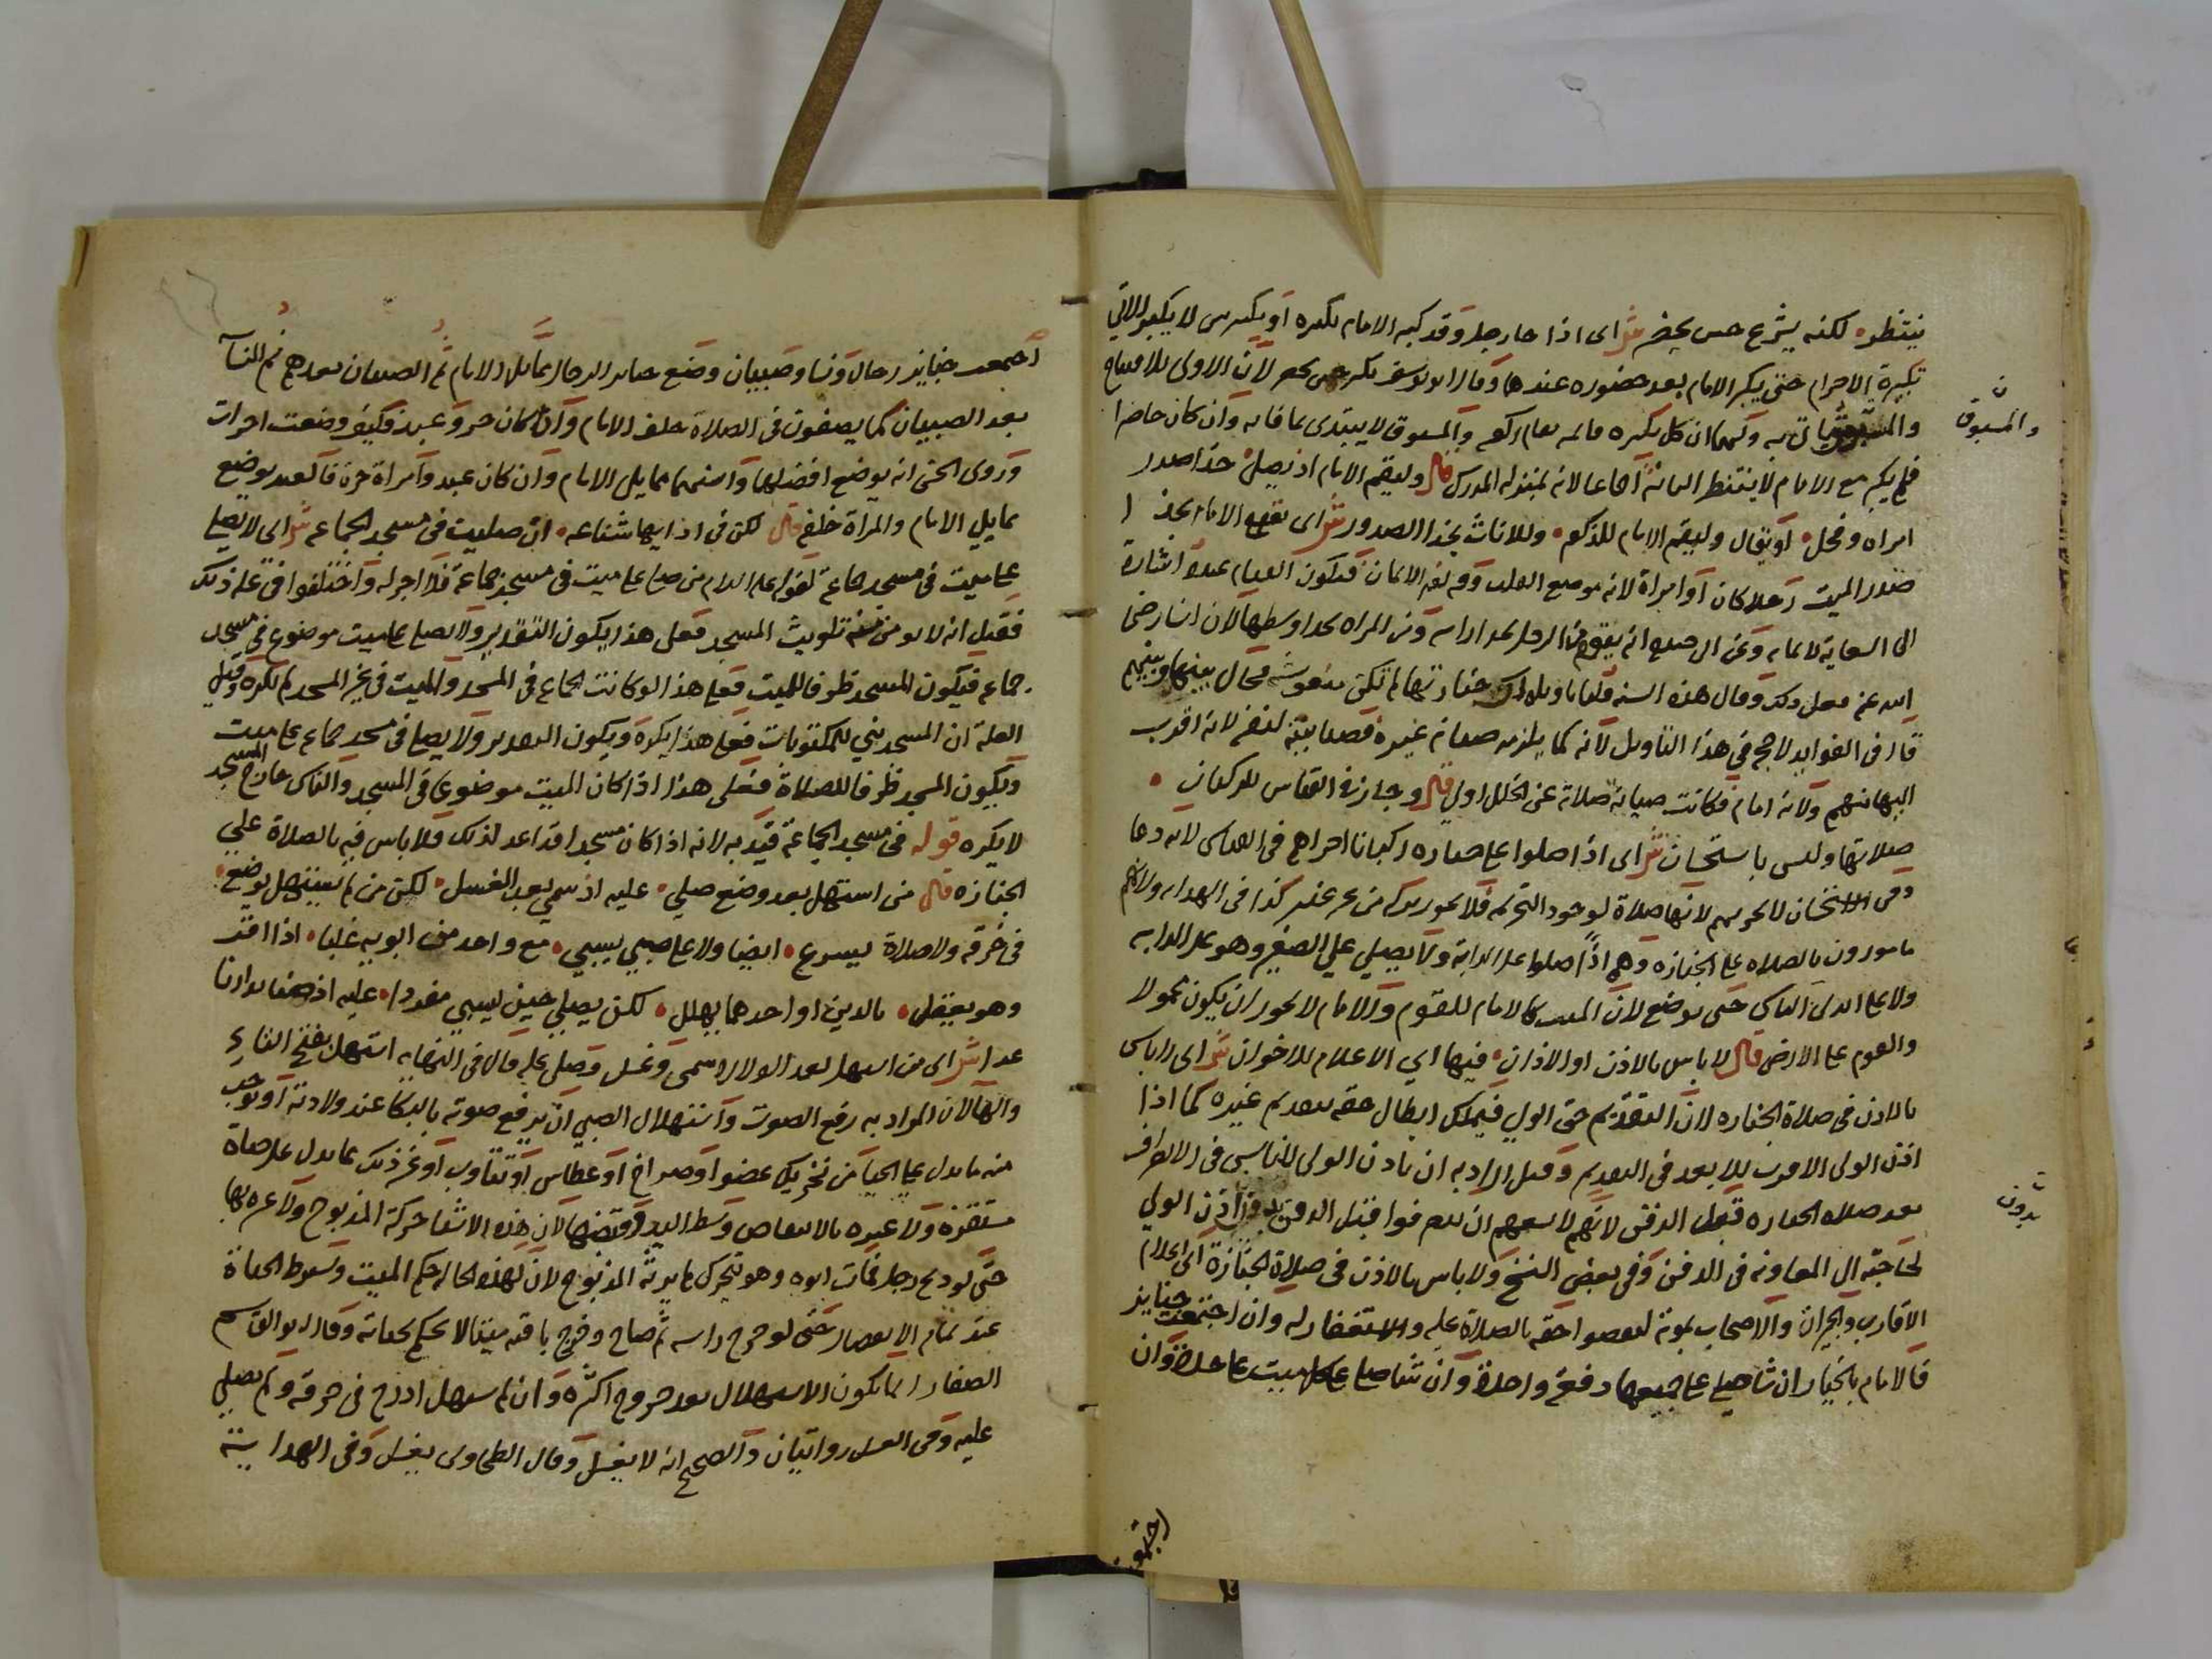 ينتظره لكنه يشرع حين يحضر ش اى اذا جا رجل وقد كبر الامام تكبيره او تكبيرتين لا يكبر الاتي
تكبيرة الاحرام حتى يكبر الامام بعد حضوره عندهما وقال ابو يوسف يكبر حين يحضر لان الاولى للافتتاح
والمسبوق ياتي به ولهما ان كل تكبيره قائمه مقام ركعه والمسبوق لا يبتدى بما فاته وان كان حاضرا
والمسبوق
فلم يكبر مع الامام لا ينتظر الثانية اجماعا لانه بمنزله المدرك قال وليقم الامام اذ يصل حذا صدر
امراه وفحل او يقال وليقم الامام للذكر وللاناث بحذا الصدور ش اى يقوم الامام بحذا
صدر الميت رجلا كان او امراة لانه موضع القلب وفيه نور الايمان فيكون القيام عنده اشارة
الى الشفاعة لايمانه وعن ابى حنيفه انه يقوم من الرجل بحذا راسه ومن المراه بحذا وسطها لان انسا رضى
الله عنه فعل ذلك وقال هذه السنه قلنا تاويله ان جنازتها لم تكن منعوشه فحال بينها وبينهم
قال فى الفوايد لاحجه في هذا التاويل لانه كما يلزمه صيانه غيره فصيانته نفسه لانه اقرب
اليها منهم ولانه امام فكانت صيانة صلاته عن الخلل اولى قال وجاز في القياس للركبان
صلاتها وليس باستحسان ش اى اذا صلوا على جنازه ركبانا اجزاهم فى القياس لانه دعا
وفى الاستحسان لا يجزيهم لانها صلاة لوجود التحريمه فلا يجوز تركه من غير عذر كذا فى الهدايه ولانهم
مامورون بالصلاه على الجنازه وهم اذا صلوا على الدابة ولا يصلي علي الصغير وهو على الدابه
ولا على ايدى الناس حتى يوضع لان الميت كالامام للقوم والامام لا يجوز ان يكون محمولا
والقوم على الارض قال لا باس بالاذن او الاذان فيها اي الاعلام للاخوان ش اى لا باس
بالاذن فى صلاة الجنازه لان التقديم حق الولي فيملك ابطال حقه بتقديم غيره كما اذا
اذن الولى الاقرب للابعد فى التقديم وقيل المراد به ان ياذن الولى للناس فى الانصراف
بعد صلاه الجنازه قبل الدفن لانهم لا يسعهم ان ينصرفوا قبل الدفن بدون اذن الولي
بدون
لحاجته الى المعاونه فى الدفن وفى بعض النسخ ولا باس بالاذن فى صلاة الجنازة اى اعلام
الاقارب والجيران والاصحاب بموته ليقضوا حقه بالصلاة عليه والاستغفار له وان اجتمعت جنايز
فالامام بالخيار ان شا صلى على جميعها دفعة واحدة وان شا صلى على كل ميت على حدة وان
اجتمعت
اجتمعت جنايز رجال ونسا وصبيان وضع جنايز الرجال مما يلى الامام ثم الصبيان بعدهم ثم النسآ
بعد الصبيان كما يصفون فى الصلاة خلف الامام وان كان حر وعبد فكيف وضعت اجزات
وروى الحسن انه يوضع افضلهما واسنهما مما يلى الامام وان كان عبد وامراة حرة فالعبد يوضع
مما يلي الامام والمراة خلفه قال لكن فى ادايها شناعه ان صليت فى مسجد الجماعه ش اى لا يصلى
على ميت فى مسجد جماعة لقوله عليه السلام من صلى على ميت فى مسجد جماعة فلا اجر له واختلفوا فى علة ذلك
فقيل انه لا يومن منه تلويث المسجد فعلى هذا يكون التقدير ولا يصلى على ميت موضوع فى مسجد
جماعه فيكون المسجد ظرفا للميت فعلى هذا لو كانت الجماعه فى المسجد والميت فى غير المسجد لم يكره وقيل
العلة ان المسجد بني للمكتوبات فعلى هذا يكره ويكون التقدير ولا يصلى فى مسجد جماعه على ميت
ويكون المسجد ظرفا للصلاة فعلى هذا اذا كان الميت موضوعا فى المسجد والناس خارج المسجد
لا يكره قوله فى مسجد الجماعة قيد به لانه اذا كان مسجدا قد اعد لذلك فلا باس فيه بالصلاة علي
الجنازه قال من استهل بعد وضع صلي عليه اذ سمي بعد الغسل لكن من لم يستهل يوضع
فى خرقه ولا صلاة يسرع ايضا ولا على صبي يسبي مع واحد من ابويه غلبا اذا اقر
وهو يعقل بالدين او احدهما يهلل لكن يصلي حين يسبي مفردا عليه اذ
ش اى من استهل بعد الولاده سمى وغسل وصلى عليه قال فى النهايه استهل بفتح التاء
والهآ لان المراد به رفع الصوت واستهلال الصبي ان يرفع صوته بالبكا عند ولادته او يوجد
منه ما يدل على الحيا من تحريك عضو او صراخ او عطاس او تثاوب او غير ذلك مما يدل على حياة
مستقره ولا عبره بالانتفاض وبسط اليد وقبضها لان هذه الاشيا حركة المذبوح ولا عبره بها
حتى لو ذبح رجل فمات ابوه وهو يتحرك لم يرثه المذبوح لان لهذه الحاله حكم الميت ويشترط الحياة
عند تمام الانفصال حتى لو خرج راسه ثم صاح وخرج باقيه ميتا لا يحكم بحياته وقال ابو القسم
الصفار انما يكون الاستهلال بعد خروج اكثره وان لم يستهل ادرج فى خرقه ولم يصلي
عليه وفى الغسل روايتان والصحيح انه لا يغسل وقال الطحاوى يغسل وفى الهداية